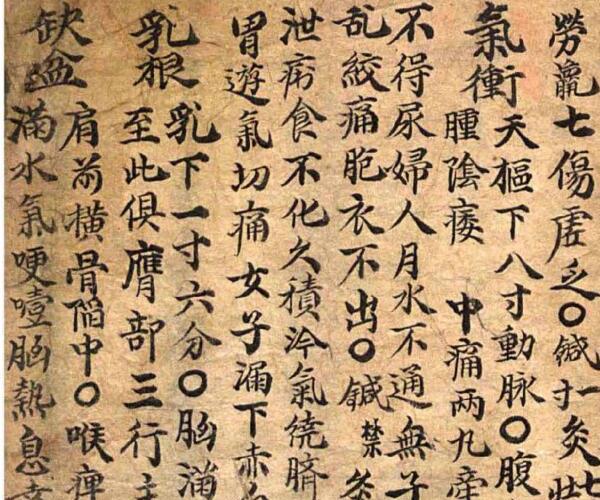 勞羸七傷虛乏○鍼一寸灸七壯
氣衝
天樞下八寸動脉○腹
腫陰痿 中痛兩丸牽
不得尿婦人月水不通無子
乱絞痛胞衣不出○鍼禁灸
泄痢食不化久積冷氣繞臍
胃遊氣切痛女子漏下赤白
乳根
乳下一寸六分○胸滿
至此俱膺部三行主
缺盆
肩前橫骨陷中○喉痺
滿水氣哽噎胸熱息